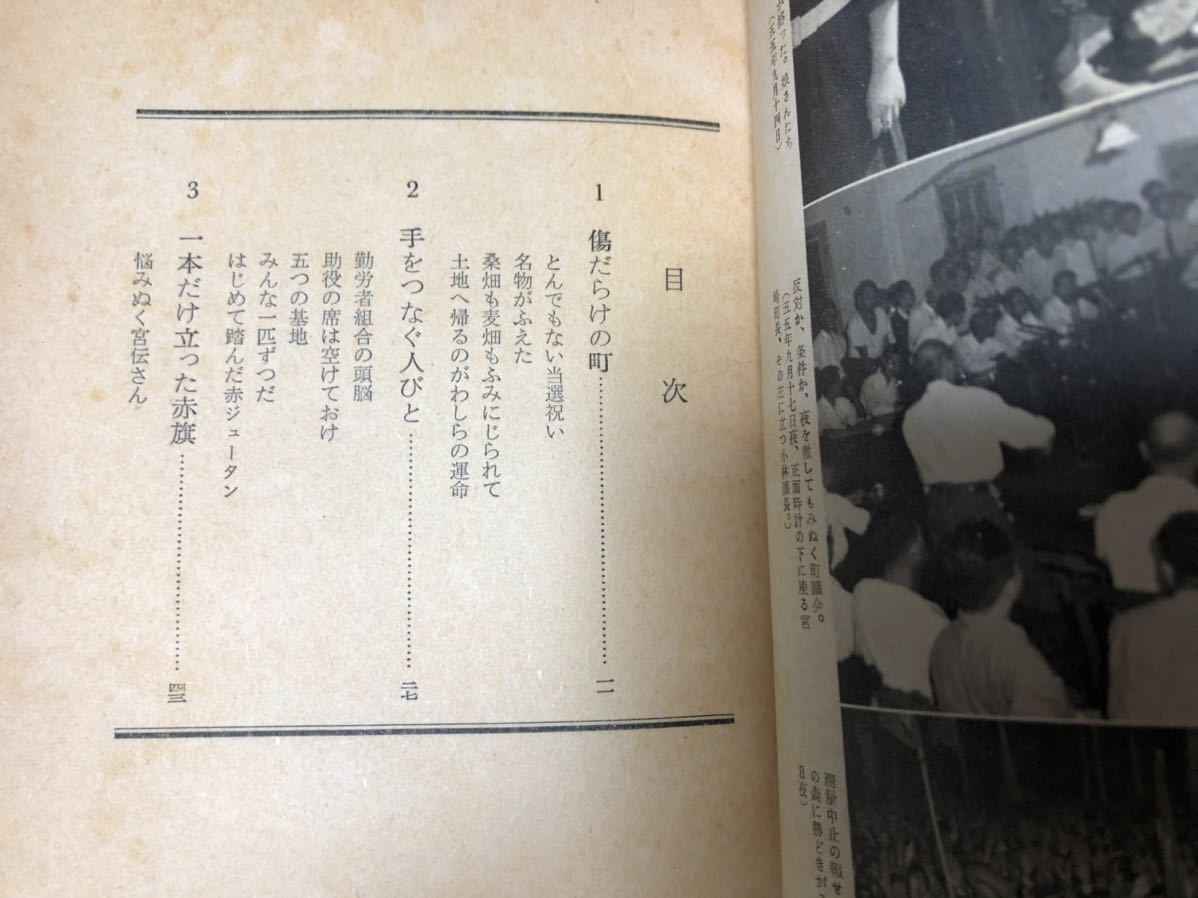 が終った。娘さんたち
(五五年九月十四日)
反対か、条件か、夜を徹してもみぬく町議会。
(五五年九月十七日夜、正面時計の下に座る宮
崎町長、その左に立つ小林議長。)
測量中止の報せ
の森に勝どきが
日夜)
目次
1 傷だらけの町……………一一
とんでもない当選祝い
名物がふえた
桑畑も麦畑もふみにじられて
土地へ帰るのがわしらの運命
2 手をつなぐ人びと……………二七
勤労者組合の頭脳
助役の席は空けておけ
五つの基地
みんな一匹ずつだ
はじめて踏んだ赤ジュータン
3 一本だけ立った赤旗……………四三
悩みぬく宮伝さん